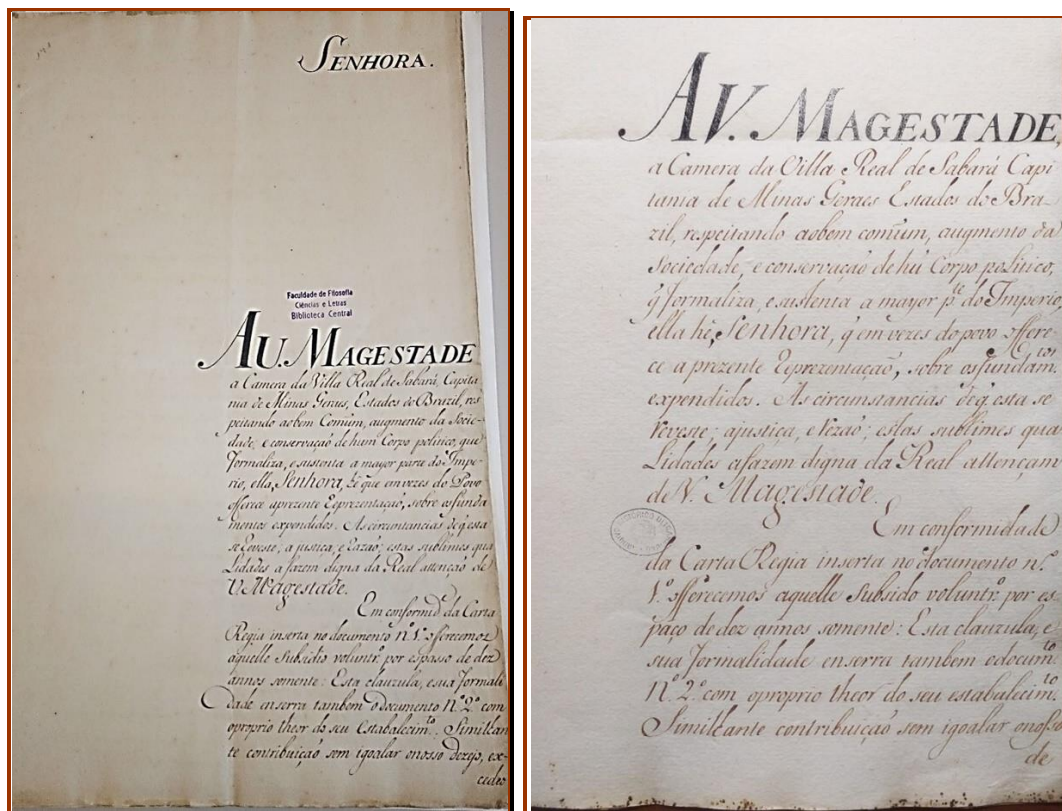 SENHORA.
Faculdade de Filosofia
Ciências e Letras
Biblioteca Central
AU. MAGESTADE
a Camera da Villa Real de Sabará, Capita
nia de Minas Geraes, Estados do Brazil, res
peitando aobem Comúm, augmento da Socie-
dade, e conservaçaõ de hum Corpo politico, que
formaliza, e sustenta a mayor parte do Impe-
rio, ella, Senhora, hé que em vezes do Povo
offerece aprezente Reprezentaçaõ, sobre osfunda
mentos expendidos. As circunstancias deq̃ esta
se Reveste, a justiça, e Razaõ; estas sublimes qua
Lidades a fazem digna da Real attençaõ de
V. Magestade.
Em conformid.ᵉ da Carta
Regia inserta no documento N.º 1.º offerecemos
aquelle Subsidio voluntr.º por espasso de dez
annos somente: Esta clauzula, esua formali
dade enserra tambem o documento N.º 2.º com
oproprio theor do seu Estabalecim.ᵗᵒ. Similhan
te contribuiçaõ sem igoalar onosso dezejo, ex-
cedeo
AV. MAGESTADE,
a Camera da Villa Real de Sabará Capi
tania de Minas Geraes Estados do Bra-
zil, respeitando aobem comũm, augmento da
Sociedade, e conservaçaõ de hũ Corpo politico,
q̃ formaliza, e sustenta a mayor p.ᵗᵉ do Imperio
ella hé, Senhora, q̃ em vezes do povo offere
ce a prezente Reprezentaçaõ, sobre osfundam.ᵗᵒˢ
expendidos. As circunstancias deq̃ esta se
Reveste; ajustiça, e Rezaõ; estas sublimes qua
Lidades afazem digna da Real attençam
de V. Magestade.
Em conformidade
da Carta Regia inserta no documento n.º
1.º offerecemos aquelle Subsido voluntr.º por es
paço de dez annos somente: Esta clauzula, e
sua formalidade enserra tambem odocum.ᵗᵒ
N.º 2.º com oproprio theor do seu estabalecim.ᵗᵒ
Similhante contribuiçaõ sem igoalar onosso
de